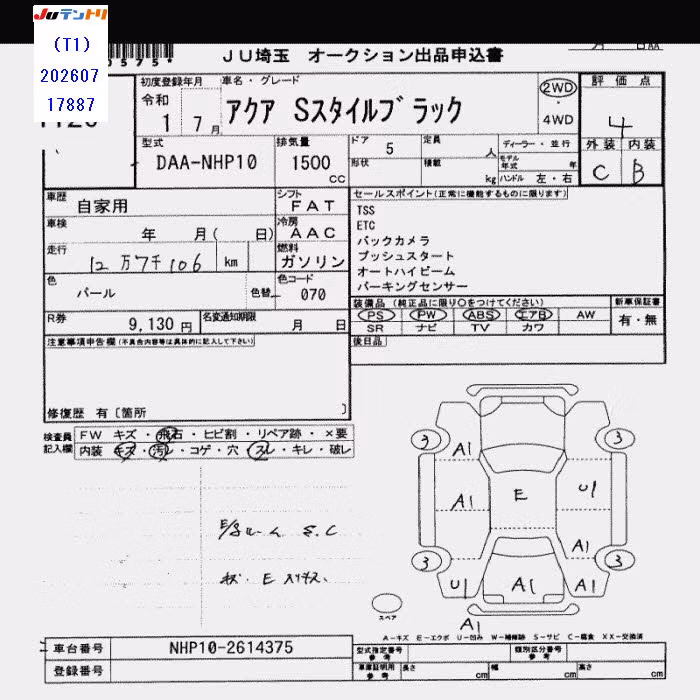 JUテントリ
(T1)
202607
17887
JU埼玉 オークション出品申込書
初度登録年月
令和
1 7 月
車名・グレード
アクア Sスタイルブラック
2WD
・
4WD
評価点
4
外装 内装
C B
型式
DAA-NHP10
排気量
1500
CC
ドア 5 定員 人
形状 積載 kg
ディーラー・並行
モデル年式 年
ハンドル 左・右
車歴
自家用
シフト
FAT
車検
年 月( 日)
冷房
AAC
走行
12万7千106 km
燃料
ガソリン
色
パール
色替
色コード
070
R券
9,130 円
名変通知期限
月 日
セールスポイント(正常に機能するものに限ります)
TSS
ETC
バックカメラ
プッシュスタート
オートハイビーム
パーキングセンサー
装備品 (純正品に限り○をつけてください)
PS PW ABS エアB AW
SR ナビ TV カワ
新車保証書
有・無
後日品
注意事項申告欄(不具合内容等は具体的に記入して下さい)
修復歴 有〔箇所 〕
検査員
記入欄
FW キズ・飛石・ヒビ割・リペア跡・×要
内装 キズ・汚レ・コゲ・穴・スレ・キレ・破レ
E/Sルーム S.C
3 3
A1
A1 E U1
A1
3 3
U1 A1 A1
A1
スペア
A-キズ E-エクボ U-凹み W-補修跡 S-サビ C-腐食 XX-交換済
車台番号 NHP10-2614375
登録番号
型式指定番号
参考
類別区分番号
参考
車庫証明用
参考
長さ cm 幅 cm 高さ cm